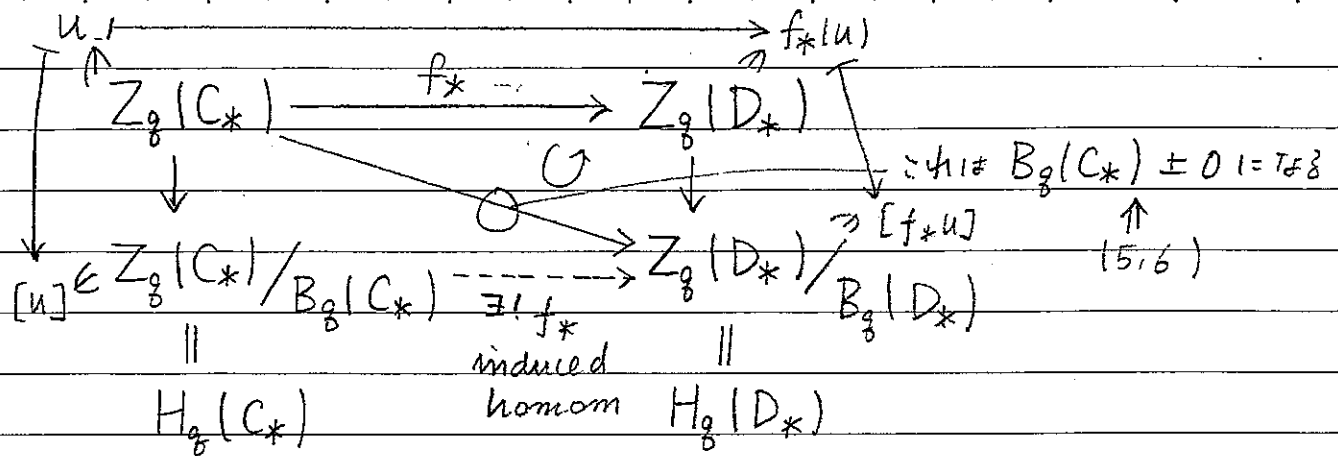 u ↦ f_*(u)
Z_q(C_*) f_* → Z_q(D_*)
これは B_q(C_*) 上 0 になる
[u] ∈ Z_q(C_*)/B_q(C_*) ∃! f_* Z_q(D_*)/B_q(D_*) ∋ [f_*u] (5,6)
|| induced ||
H_q(C_*) homom H_q(D_*)